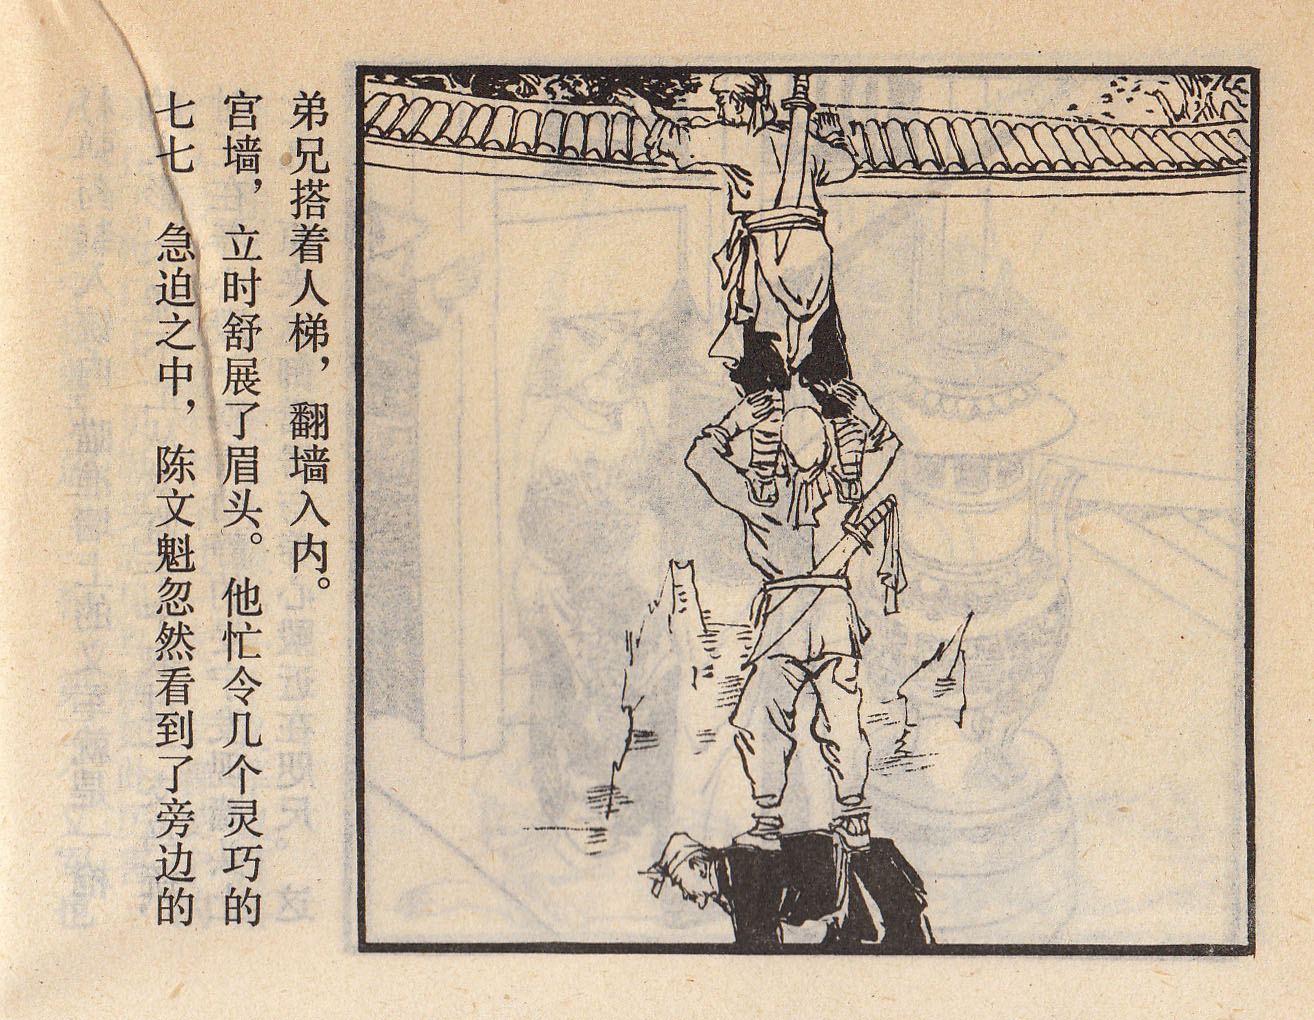 七七 急迫之中，陈文魁忽然看到了旁边的
宫墙，立时舒展了眉头。他忙令几个灵巧的
弟兄搭着人梯，翻墙入内。